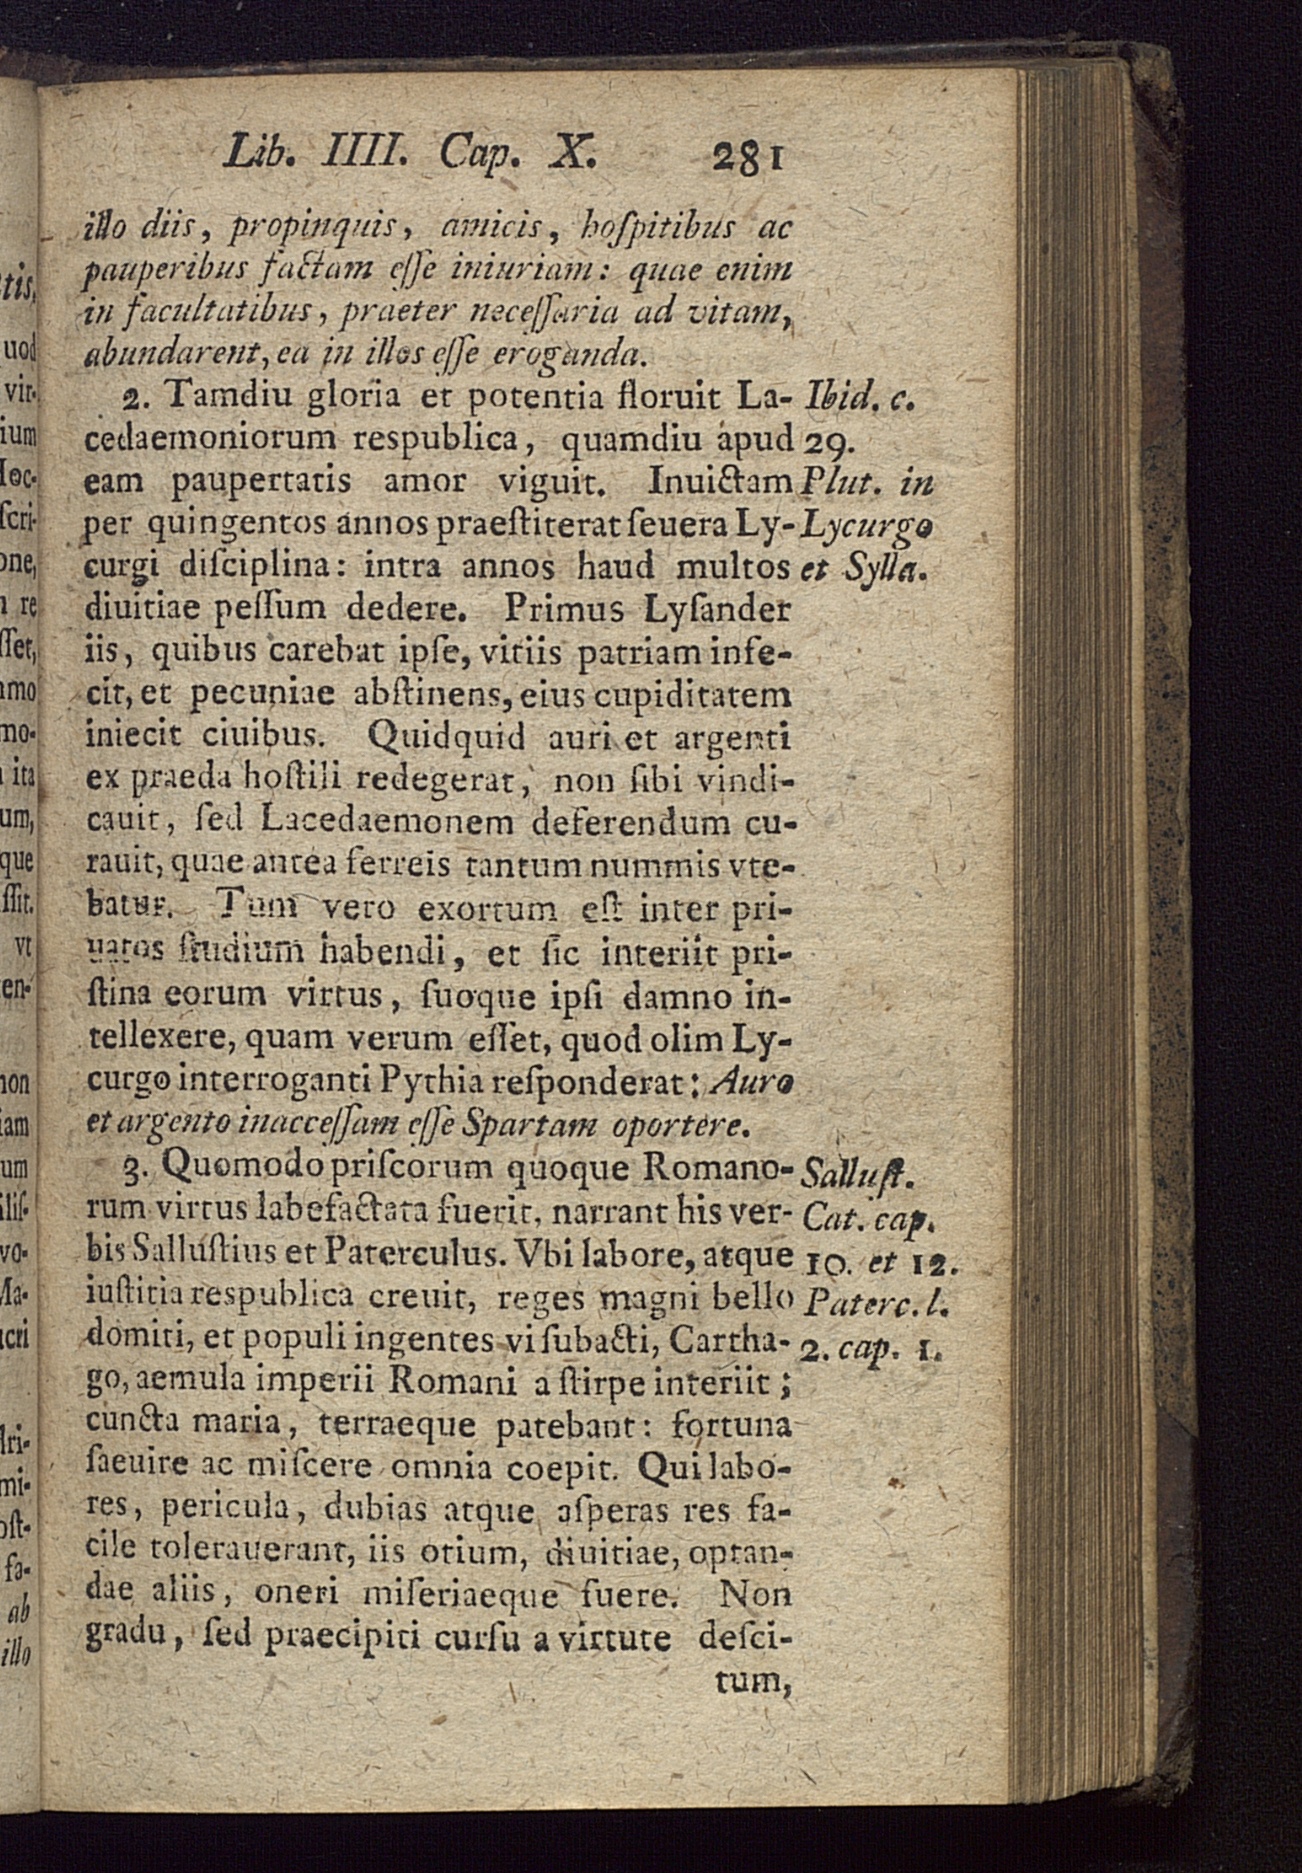 Lib. IIII. Cap. X. 281
illo diis, propinquis, amicis, hoſpitibus ac
pauperibus factam eſſe iniuriam: quae enim
in facultatibus, praeter neceſſaria ad vitam,
abundarent, ea in illos eſſe eroganda.
2. Tamdiu gloria et potentia floruit La-
cedaemoniorum respublica, quamdiu apud
eam paupertatis amor viguit. Inuictam
per quingentos annos praeſtiterat ſeuera Ly-
curgi diſciplina: intra annos haud multos
diuitiae peſſum dedere. Primus Lyſander
iis, quibus carebat ipſe, vitiis patriam infe-
cit, et pecuniae abſtinens, eius cupiditatem
iniecit ciuibus. Quidquid auri et argenti
ex praeda hoſtili redegerat, non ſibi vindi-
cauit, ſed Lacedaemonem deferendum cu-
rauit, quae antea ferreis tantum nummis vte-
batur. Tum vero exortum eſt inter pri-
uatos ſtudium habendi, et ſic interiit pri-
ſtina eorum virtus, ſuoque ipſi damno in-
tellexere, quam verum eſſet, quod olim Ly-
curgo interroganti Pythia reſponderat: Auro
et argento inacceſſam eſſe Spartam oportere.
3. Quomodo priſcorum quoque Romano-
rum virtus labefactata fuerit, narrant his ver-
bis Salluſtius et Paterculus. Vbi labore, atque
iuſtitia respublica creuit, reges magni bello
domiti, et populi ingentes vi ſubacti, Cartha-
go, aemula imperii Romani a ſtirpe interiit;
cuncta maria, terraeque patebant: fortuna
ſaeuire ac miſcere omnia coepit. Qui labo-
res, pericula, dubias atque aſperas res fa-
cile tolerauerant, iis otium, diuitiae, optan-
dae aliis, oneri miſeriaeque fuere. Non
gradu, ſed praecipiti curſu a virtute deſci-
tum,
Ibid. c.
29.
Plut. in
Lycurgo
et Sylla.
Salluſt.
Cat. cap.
10. et 12.
Paterc. l.
2. cap. 1.